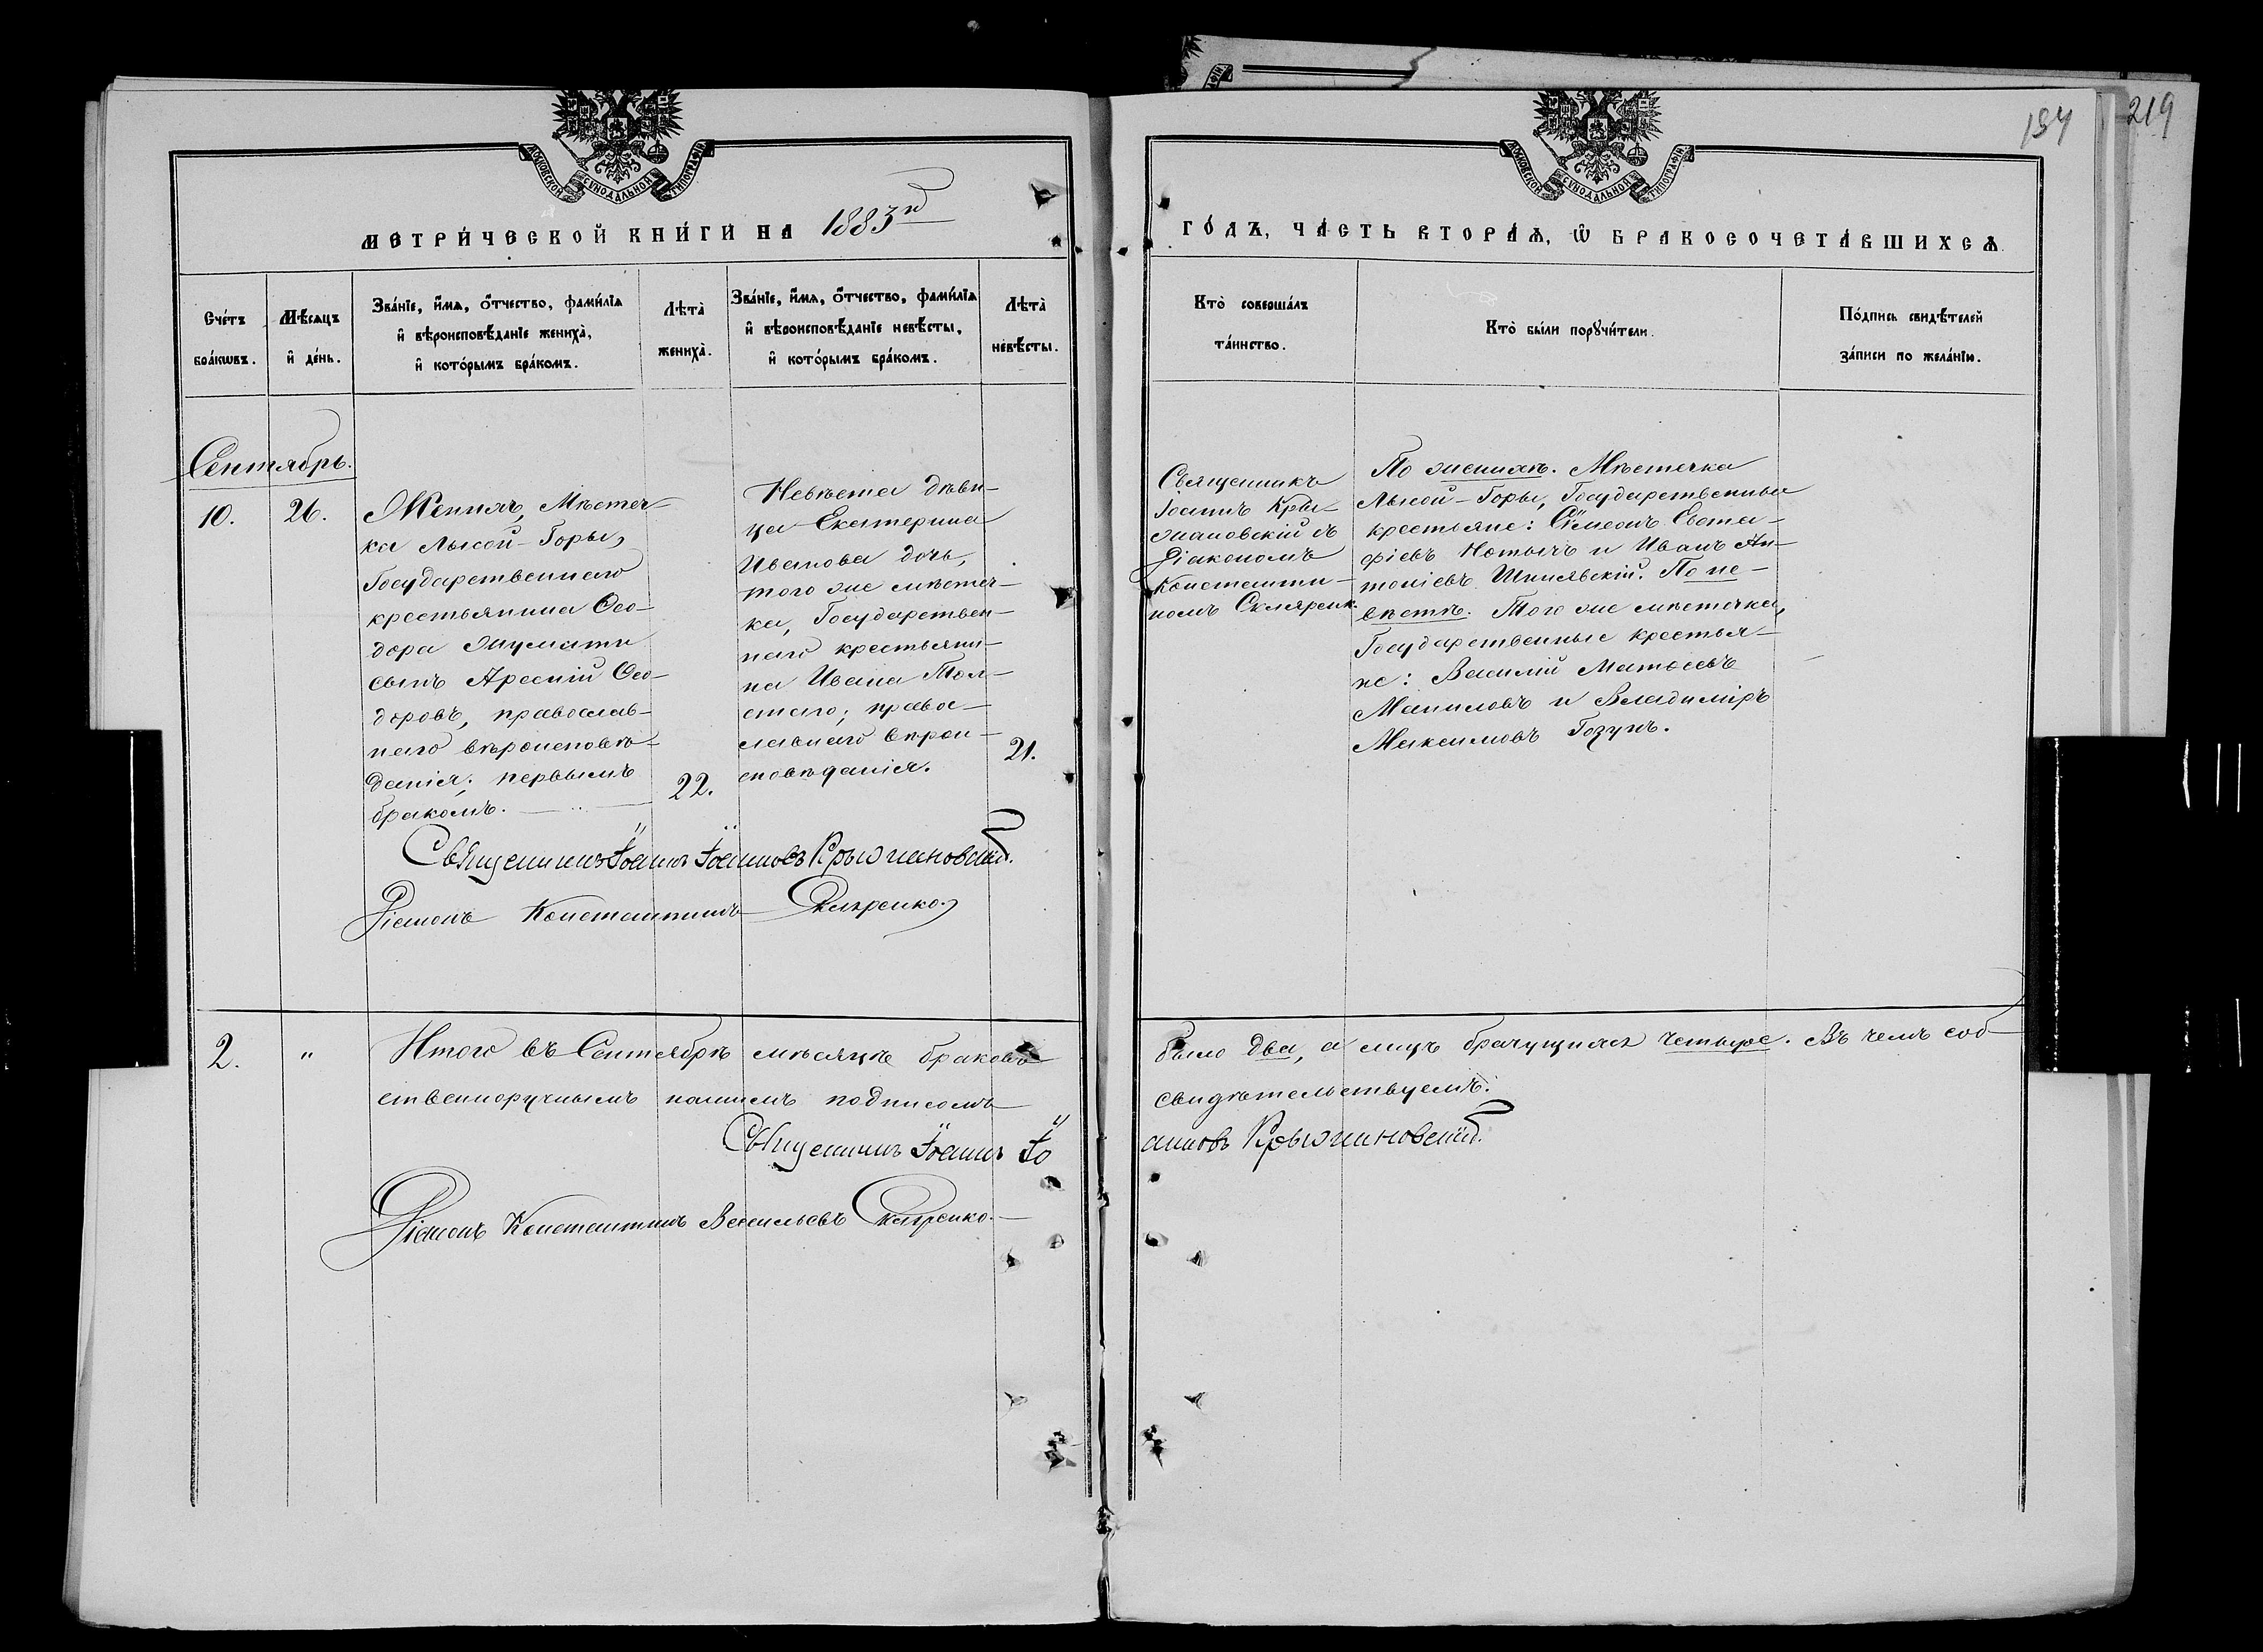 194
219
МОСКОВСКОЙ СѴНОДАЛЬНОЙ ТИПОГРАФІИ
МОСКОВСКОЙ СѴНОДАЛЬНОЙ ТИПОГРАФІИ
МЕТРИ́ЧЕСКОЙ КНИ́ГИ НА 1883й
ГО́ДЪ, ЧА́СТЬ ВТОРА́Ѧ, Ѡ БРАКОСОЧЕТА́ВШИХСѦ
Сче́тъ бра́кѡвъ.
Мѣ́сѧцъ и҆ де́нь.
Зва́нїе, и҆́мѧ, ѻ҆́тчество, фами́лїѧ
и҆ вѣроисповѣ́данїе жениха̀,
и҆ кото́рымъ бра́комъ.
Лѣта̀
жениха̀.
Зва́нїе, и҆́мѧ, ѻ҆́тчество, фами́лїѧ
и҆ вѣроисповѣ́данїе невѣ́сты,
и҆ кото́рымъ бра́комъ.
Лѣта̀
невѣ́сты.
Кто̀ соверша́лъ
та́инство.
Кто̀ бы́ли порꙋчи́тели.
По́дпись свидѣ́телей
за́писи по жела́нїю.
Сентябрь.
10.
26.
Женихъ, Мѣстеч-
ка Лысой-Горы,
Государственнаго
крестьянина Ѳео-
дора
сынъ Арсеній Ѳео-
доровъ, православ-
наго вѣроисповѣ-
данія; первымъ
бракомъ.
22.
Невѣста дѣви-
ца Екатерина
Иванова дочь,
того же мѣстеч-
ка, Государствен-
наго крестьяни-
на Ивана Тол-
стаго; правос-
лавнаго вѣрои-
сповѣданія.
21.
Священникъ
Іоаннъ Кры-
жановскій съ
Діакономъ
Константи-
номъ Скляренк.
По женихѣ. Мѣстечка
Лысой-Горы, Государственныя
крестьяне: Сѷмеонъ Евста-
фіевъ и Иванъ Ан-
тоніевъ По не-
вѣстѣ. Того же мѣстечка,
Государственные крестья-
не: Василій Матѳеевъ
Маниловъ и Владиміръ
Максимовъ Гозунъ.
Священникъ Іоаннъ Іоанновъ Крыжановскій.
Діаконъ Константинъ Скляренко.
2.
"
Итого въ Сентябрѣ мѣсяцѣ браковъ
было два, а лицъ брачущихся четыре. Въ чемъ соб-
ственноручнымъ нашимъ подписомъ
свидѣтельствуемъ.
Священникъ Іоаннъ Іо
анновъ Крыжановскій.
Діаконъ Константинъ Васильевъ Скляренко.